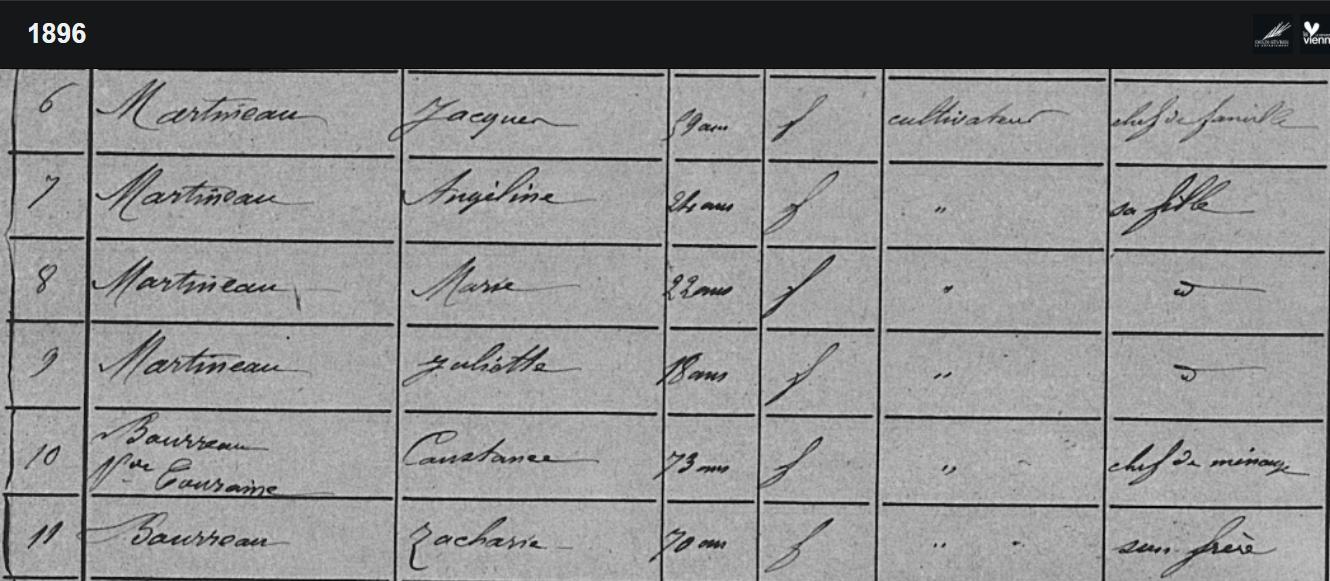 1896
6 Martineau Jacques 59 ans f cultivateur chef de famille
7 Martineau Angéline 24 ans f " sa fille
8 Martineau Marie 22 ans f " d
9 Martineau Juliette 18 ans f " d
10 Bourreau Constance 73 ans f " chef de ménage
Vve Touraine
11 Bourreau Zacharie 70 ans f " son frère